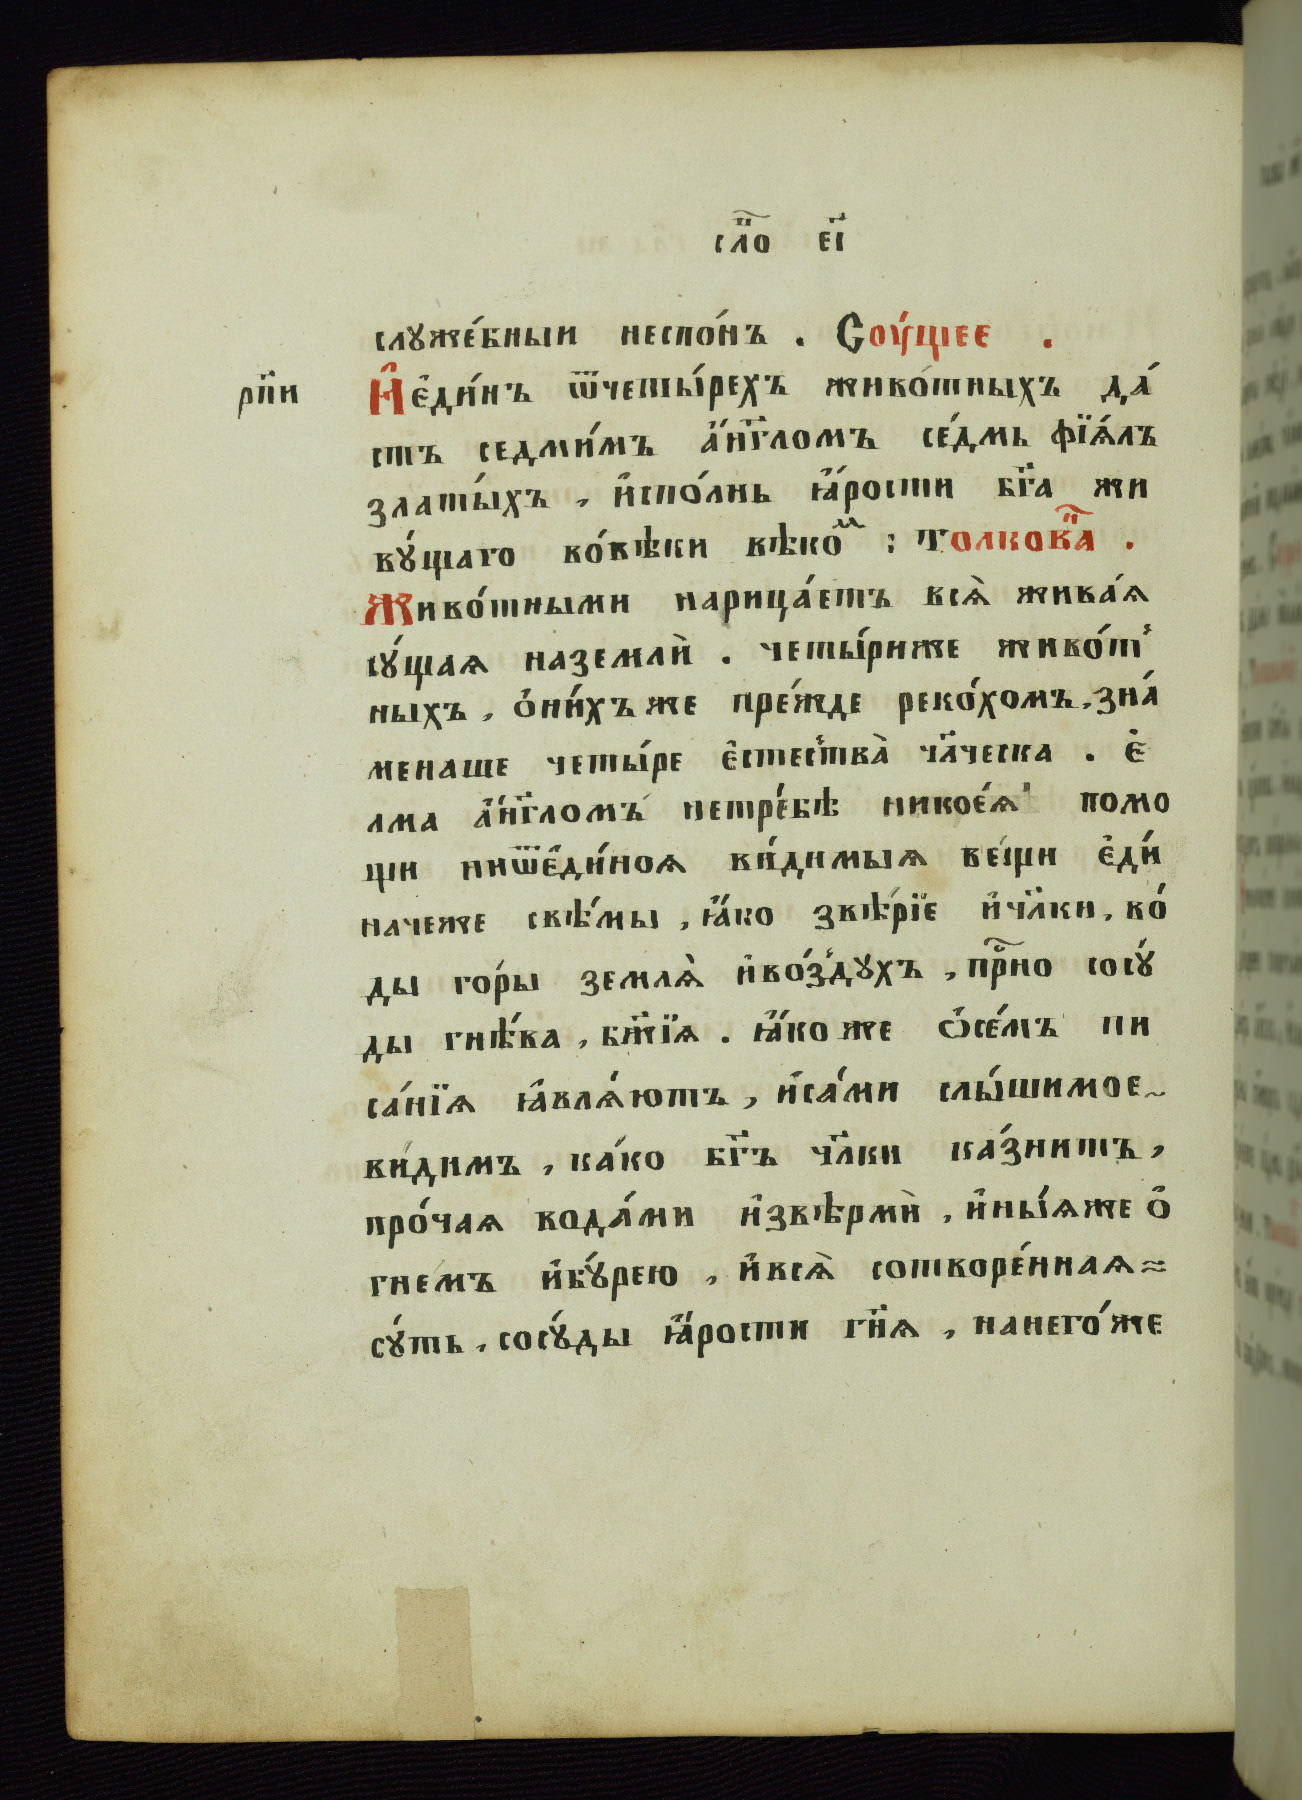 сл҃о е҃і
служе́бныи неспо́нъ . Соу́щее .
рп҃и И҆ є҆ди́нъ ѿчеты́рехъ живо́тныхъ да́
стъ седми́мъ а҆́нг҃ломъ се́дмь фїѧ́лъ
златы́хъ , и҆спо́лнь ꙗ҆́рости бг҃а жи
ву́щаго во́вѣки вѣко́м : Толкова҃ .
Живо́тными нарица́етъ всѧ̀ жива́ѧ
су́щаѧ наземлѝ . четы́риже живо́т
ныхъ , о҆ни́хъже пре́жде реко́хомъ , зна́
менаше четы́ре є҆стества̀ чл҃ческа . є҆
лма а҆́нг҃ломъ нетре́бѣ никое́ѧ помо
щи ниѿє҆ди́ноѧ ви́димыѧ ве́щи є҆ди́
начеже свѣ́мы , ꙗ҆́ко звѣ́рїе и҆чл҃ки , во́
ды го́ры землѧ̀ и҆во́здухъ , пр҃но сосу́
ды гнѣ́ва , бж҃їѧ . ꙗ҆́коже ѡ҆се́мъ пи
са́нїѧ ꙗ҆влѧ́ютъ , и҆са́ми слы́шимое
ви́димъ , ка́ко бг҃ъ чл҃ки ка́знитъ ,
про́чаѧ вода́ми и҆звѣрмѝ , и҆ны́ѧже о҆
гне́мъ и҆бу́рею , и҆всѧ̀ сотворе́ннаѧ
су́ть , сосу́ды ꙗ҆́рости гн҃ѧ , нанего́же